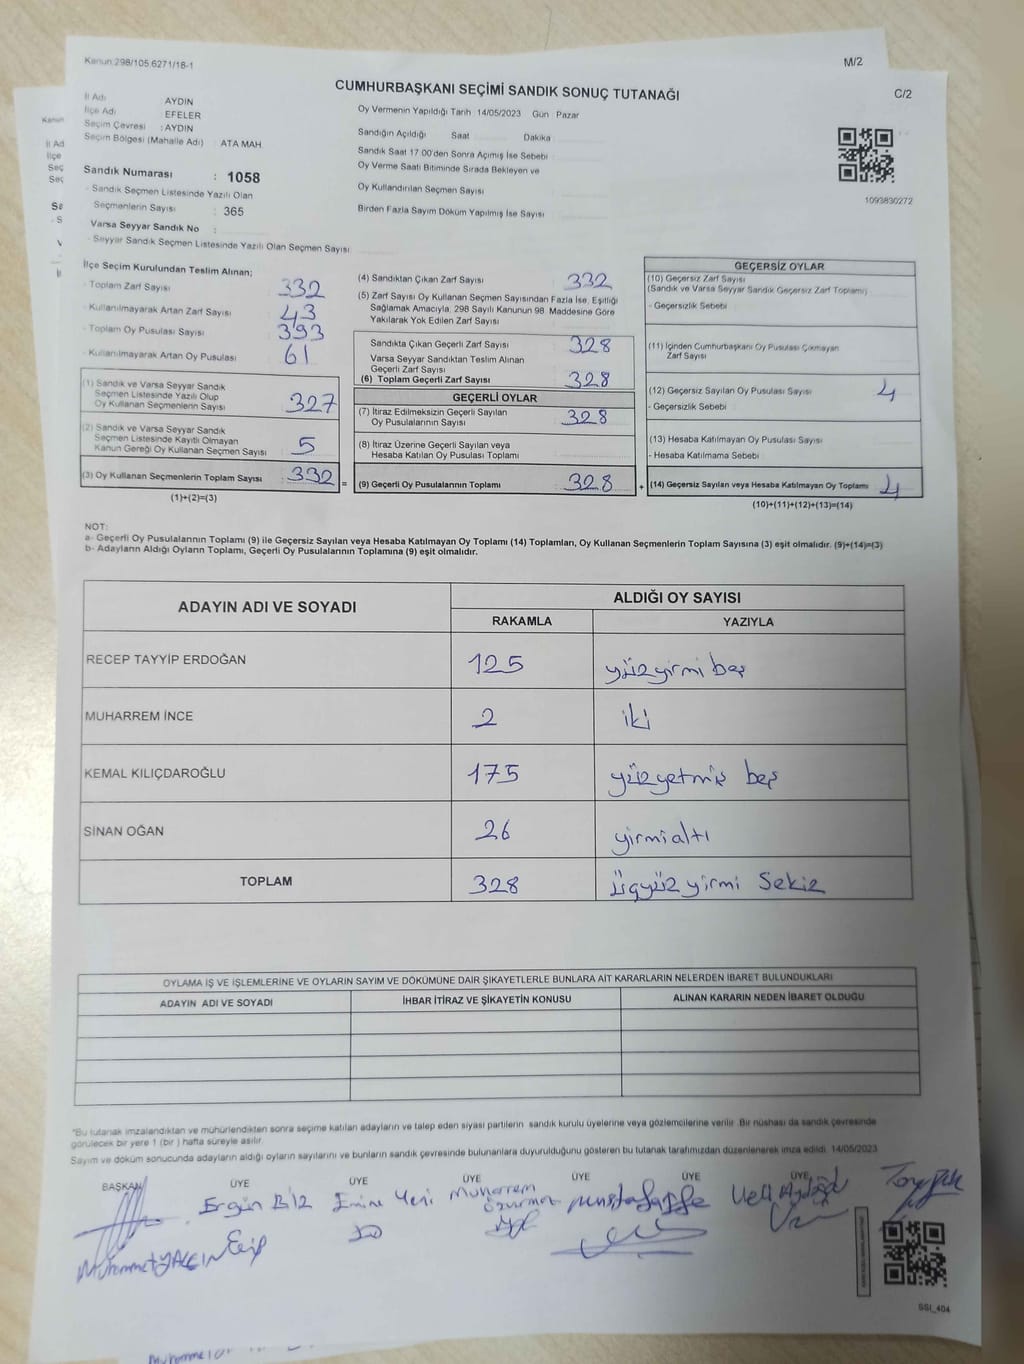 Kanun:298/105,6271/18-1
M/2
CUMHURBAŞKANI SEÇİMİ SANDIK SONUÇ TUTANAĞI
C/2
İl Adı AYDIN
İlçe Adı EFELER
Seçim Çevresi : AYDIN
Seçim Bölgesi (Mahalle Adı) : ATA MAH.
Oy Vermenin Yapıldığı Tarih 14/05/2023 Gün Pazar
Sandığın Açıldığı Saat Dakika
Sandık Saat 17.00'den Sonra Açımış İse Sebebi
Oy Verme Saati Bitiminde Sırada Bekleyen ve
Oy Kullandırılan Seçmen Sayısı
Birden Fazla Sayım Döküm Yapılmış İse Sayısı
1093830272
Sandık Numarası : 1058
- Sandık Seçmen Listesinde Yazılı Olan
Seçmenlerin Sayısı : 365
Varsa Seyyar Sandık No :
- Seyyar Sandık Seçmen Listesinde Yazılı Olan Seçmen Sayısı
İlçe Seçim Kurulundan Teslim Alınan;
- Toplam Zarf Sayısı 332
- Kullanılmayarak Artan Zarf Sayısı 43
- Toplam Oy Pusulası Sayısı 393
- Kullanılmayarak Artan Oy Pusulası 61
(1) Sandık ve Varsa Seyyar Sandık
Seçmen Listesinde Yazılı Olup
Oy Kullanan Seçmenlerin Sayısı 327
(2) Sandık ve Varsa Seyyar Sandık
Seçmen Listesinde Kayıtlı Olmayan
Kanun Gereği Oy Kullanan Seçmen Sayısı 5
(3) Oy Kullanan Seçmenlerin Toplam Sayısı : 332 =
(1)+(2)=(3)
(4) Sandıktan Çıkan Zarf Sayısı 332
(5) Zarf Sayısı Oy Kullanan Seçmen Sayısından Fazla İse, Eşitliği
Sağlamak Amacıyla, 298 Sayılı Kanunun 98. Maddesine Göre
Yakılarak Yok Edilen Zarf Sayısı
Sandıkta Çıkan Geçerli Zarf Sayısı 328
Varsa Seyyar Sandıktan Teslim Alınan
Geçerli Zarf Sayısı
(6) Toplam Geçerli Zarf Sayısı 328
GEÇERLİ OYLAR
(7) İtiraz Edilmeksizin Geçerli Sayılan
Oy Pusulalarının Sayısı 328
(8) İtiraz Üzerine Geçerli Sayılan veya
Hesaba Katılan Oy Pusulası Toplamı
(9) Geçerli Oy Pusulalarının Toplamı 328 +
GEÇERSİZ OYLAR
(10) Geçersiz Zarf Sayısı
(Sandık ve Varsa Seyyar Sandık Geçersiz Zarf Toplamı)
- Geçersizlik Sebebi
(11) İçinden Cumhurbaşkanı Oy Pusulası Çıkmayan
Zarf Sayısı
(12) Geçersiz Sayılan Oy Pusulası Sayısı 4
- Geçersizlik Sebebi
(13) Hesaba Katılmayan Oy Pusulası Sayısı
- Hesaba Katılmama Sebebi
(14) Geçersiz Sayılan veya Hesaba Katılmayan Oy Toplamı 4
(10)+(11)+(12)+(13)=(14)
NOT:
a- Geçerli Oy Pusulalarının Toplamı (9) ile Geçersiz Sayılan veya Hesaba Katılmayan Oy Toplamı (14) Toplamları, Oy Kullanan Seçmenlerin Toplam Sayısına (3) eşit olmalıdır. (9)+(14)=(3)
b- Adayların Aldığı Oyların Toplamı, Geçerli Oy Pusulalarının Toplamına (9) eşit olmalıdır.
ADAYIN ADI VE SOYADI
ALDIĞI OY SAYISI
RAKAMLA YAZIYLA
RECEP TAYYİP ERDOĞAN 125 yüzyirmi beş
MUHARREM İNCE 2 iki
KEMAL KILIÇDAROĞLU 175 yüzyetmiş beş
SİNAN OĞAN 26 yirmialtı
TOPLAM 328 üçyüz yirmi Sekiz
OYLAMA İŞ VE İŞLEMLERİNE VE OYLARIN SAYIM VE DÖKÜMÜNE DAİR ŞİKAYETLERLE BUNLARA AİT KARARLARIN NELERDEN İBARET BULUNDUKLARI
ADAYIN ADI VE SOYADI İHBAR İTİRAZ VE ŞİKAYETİN KONUSU ALINAN KARARIN NEDEN İBARET OLDUĞU
"Bu tutanak imzalandıktan ve mühürlendikten sonra seçime katılan adayların ve talep eden siyasi partilerin sandık kurulu üyelerine veya gözlemcilerine verilir. Bir nüshası da sandık çevresinde
görülecek bir yere 1 (bir ) hafta süreyle asılır.
Sayım ve döküm sonucunda adayların aldığı oyların sayılarını ve bunların sandık çevresinde bulunanlara duyurulduğunu gösteren bu tutanak tarafımızdan düzenlenerek imza edildi. 14/05/2023
BAŞKAN ÜYE ÜYE ÜYE ÜYE ÜYE ÜYE
Ergün Biz Emine Yeni Muharrem
Muhammet YALÇIN
SSI_404